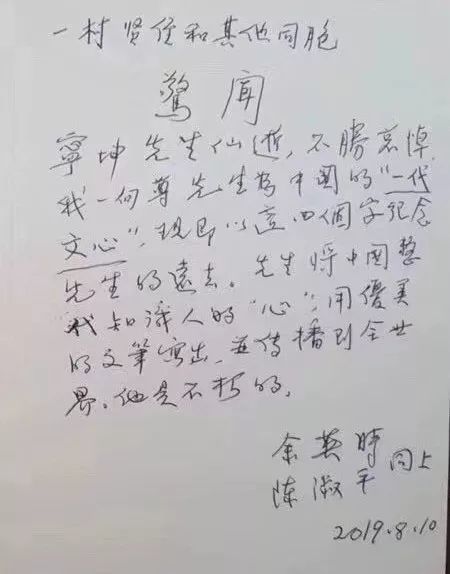 一村贤侄和其他同胞
驚闻
寧坤先生仙逝，不勝哀悼
我一向尊先生為中国的“一代
文心”，现即以這四個字纪念
先生的遠去。先生将中國整
代知識人的“心”，用優美
的文筆寫出，並传播到全世
界。他是不朽的。
余英時
陳淑平 同上
2019.8.10